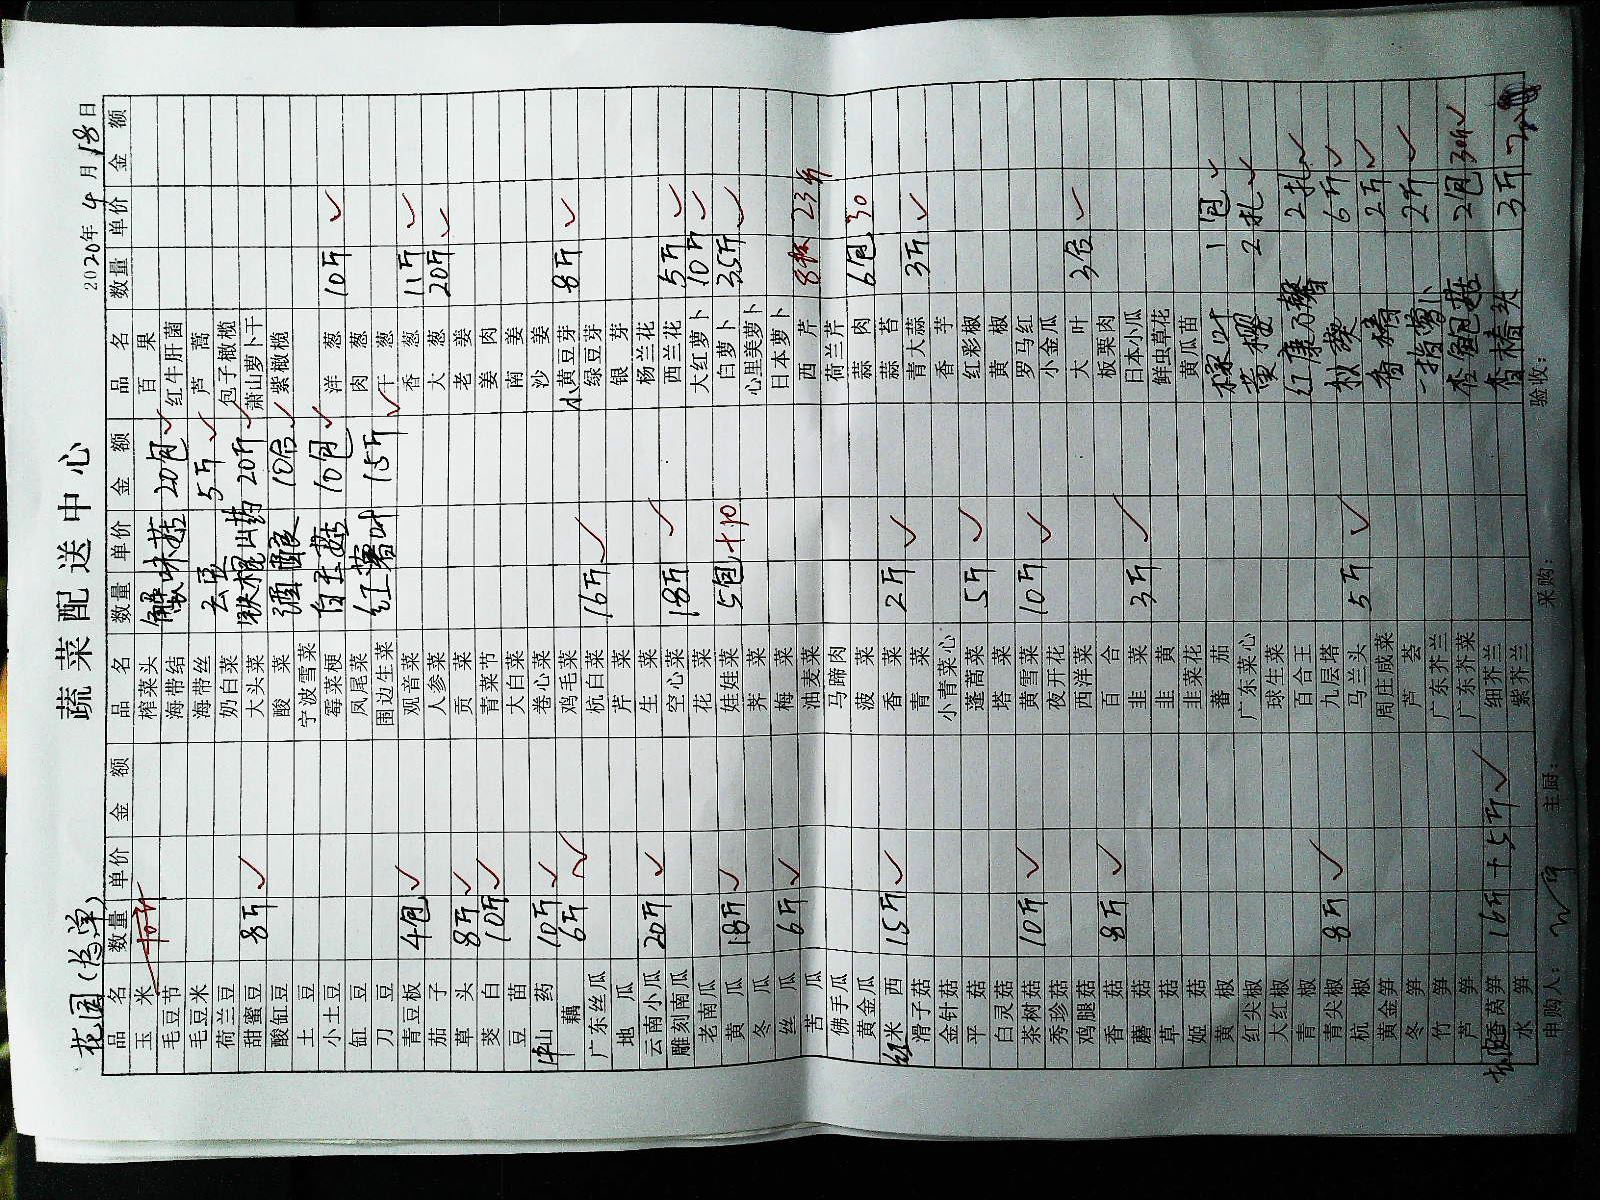 蔬菜配送中心
花园(总单) 2020年4月18日
品名 数量 单价 金额 品名 数量 单价 金额 品名 数量 单价 金额
玉米 榨菜头 百果
毛豆节 海带结 蟹味菇 20包 ✓ 红牛肝菌
毛豆米 海带丝 云豆 5斤 ✓ 芦蒿
荷兰豆 奶白菜 铁棍山药 20斤 ✓ 包子橄榄
甜蜜豆 8斤 ✓ 大头菜 萧山萝卜干
酸缸豆 酸菜 酒酿 10合 ✓ 紫橄榄
土豆 宁波雪菜
小土豆 霉菜梗 白玉菇 10包 ✓ 洋葱 10斤 ✓
缸豆 凤尾菜 肉葱
刀豆 围边生菜 红薯叶 15斤 ✓ 干葱
青豆板 4包 ✓ 观音菜 香葱 11斤 ✓
茄子 人参菜 大葱 20斤 ✓
草头 8斤 ✓ 贡菜 老姜
茭白 10斤 ✓ 青菜节 姜肉
豆苗 大白菜 南姜
山药 10斤 ✓ 卷心菜 沙姜
藕 6斤 ✓ 鸡毛菜 小黄豆芽 8斤 ✓
广东丝瓜 杭白菜 16斤 ✓ 绿豆芽
地瓜 芹菜 银芽
云南小瓜 20斤 ✓ 生菜 杨兰花
雕刻南瓜 空心菜 18斤 ✓ 西兰花 5斤 ✓
老南瓜 花菜 大红萝卜 10斤 ✓
黄瓜 18斤 ✓ 娃娃菜 5包 +10 白萝卜 35斤 ✓
冬瓜 荠菜 心里美萝卜
丝瓜 6斤 ✓ 梅菜 日本萝卜
苦瓜 油麦菜 西芹 23斤
佛手瓜 马蹄肉 荷兰芹
黄金瓜 菠菜 蒜肉 6包 30
红米西 15斤 ✓ 香菜 2斤 ✓ 蒜苔
滑子菇 青菜 青大蒜 3斤 ✓
金针菇 小青菜心 香芋
平菇 蓬蒿菜 5斤 ✓ 红彩椒
白灵菇 塔菜 黄椒
茶树菇 10斤 ✓ 黄雪菜 10斤 ✓ 罗马红
秀珍菇 夜开花 小金瓜
鸡腿菇 西洋菜 大叶 3合 ✓
香菇 8斤 ✓ 百合 板栗肉
蘑菇 韭菜 3斤 ✓ 日本小瓜
草菇 韭黄 鲜虫草花
姬菇 韭菜花 黄瓜苗
黄椒 蕃茄 1包 ✓
红尖椒 广东菜心 2扎 ✓
大红椒 球生菜
青椒 百合王 红康乃馨 2扎 ✓
青尖椒 8斤 ✓ 九层塔 秋葵 6斤 ✓
杭椒 马兰头 5斤 ✓ 2斤 ✓
黄金笋 周庄咸菜
冬笋 芦荟 2斤 ✓
竹笋 广东芥兰
芦笋 广东芥菜 杏鲍菇 2包 30斤 ✓
莴笋 16斤+5斤 ✓ 细芥兰
水笋 紫芥兰 香椿头 3斤
申购人: 主厨: 采购: 验收: